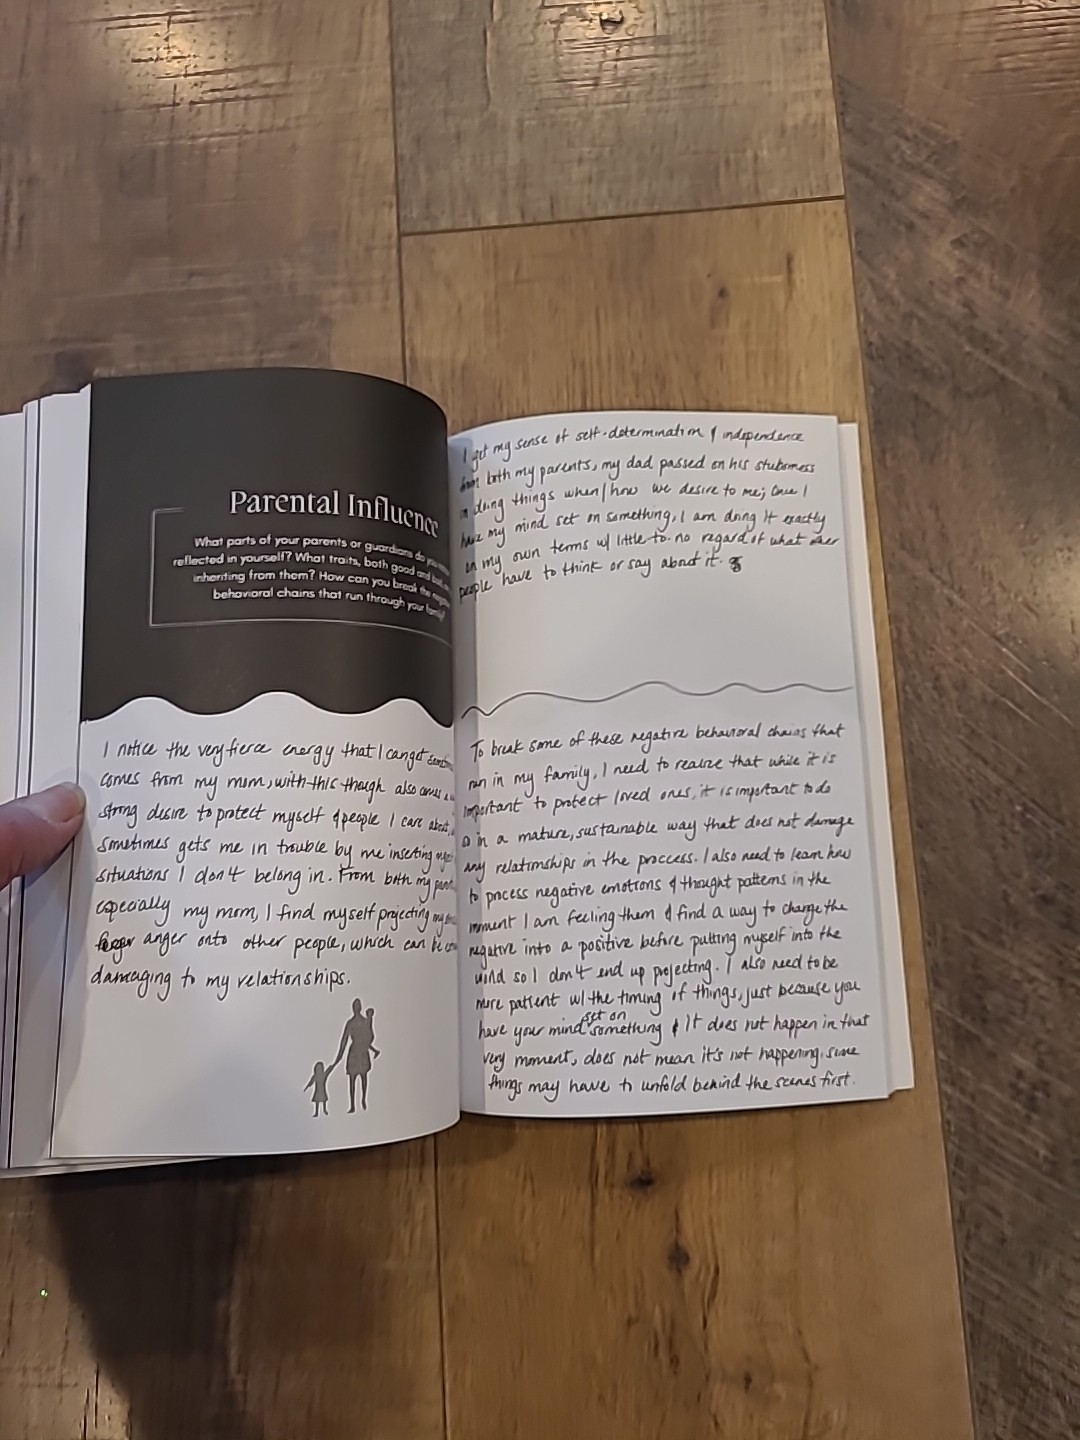 Parental Influence
What parts of your parents or guardians do you
reflected in yourself? What traits, both good and bad,
inheriting from them? How can you break the negative
behavioral chains that run through your family?
I notice the very fierce energy that I can get
comes from my mom, with this though also comes a
strong desire to protect myself & people I care about,
sometimes gets me in trouble by me inserting
situations I don't belong in. From both my
especially my mom, I find myself projecting my
anger onto other people, which can be
damaging to my relationships.
I get my sense of self-determination & independence
from both my parents, my dad passed on his stuborness
in doing things when/how we desire to me; once I
have my mind set on something, I am doing it exactly
on my own terms w/ little-to-no regard of what other
people have to think or say about it.
To break some of these negative behavioral chains that
run in my family, I need to realize that while it is
important to protect loved ones, it is important to do
so in a mature, sustainable way that does not damage
any relationships in the proccess. I also need to learn how
to process negative emotions & thought patterns in the
moment I am feeling them & find a way to change the
negative into a positive before putting myself into the
world so I don't end up projecting. I also need to be
more patient w/ the timing of things, just because you
have your mind set on something & it does not happen in that
very moment, does not mean it's not happening, some
things may have to unfold behind the scenes first.